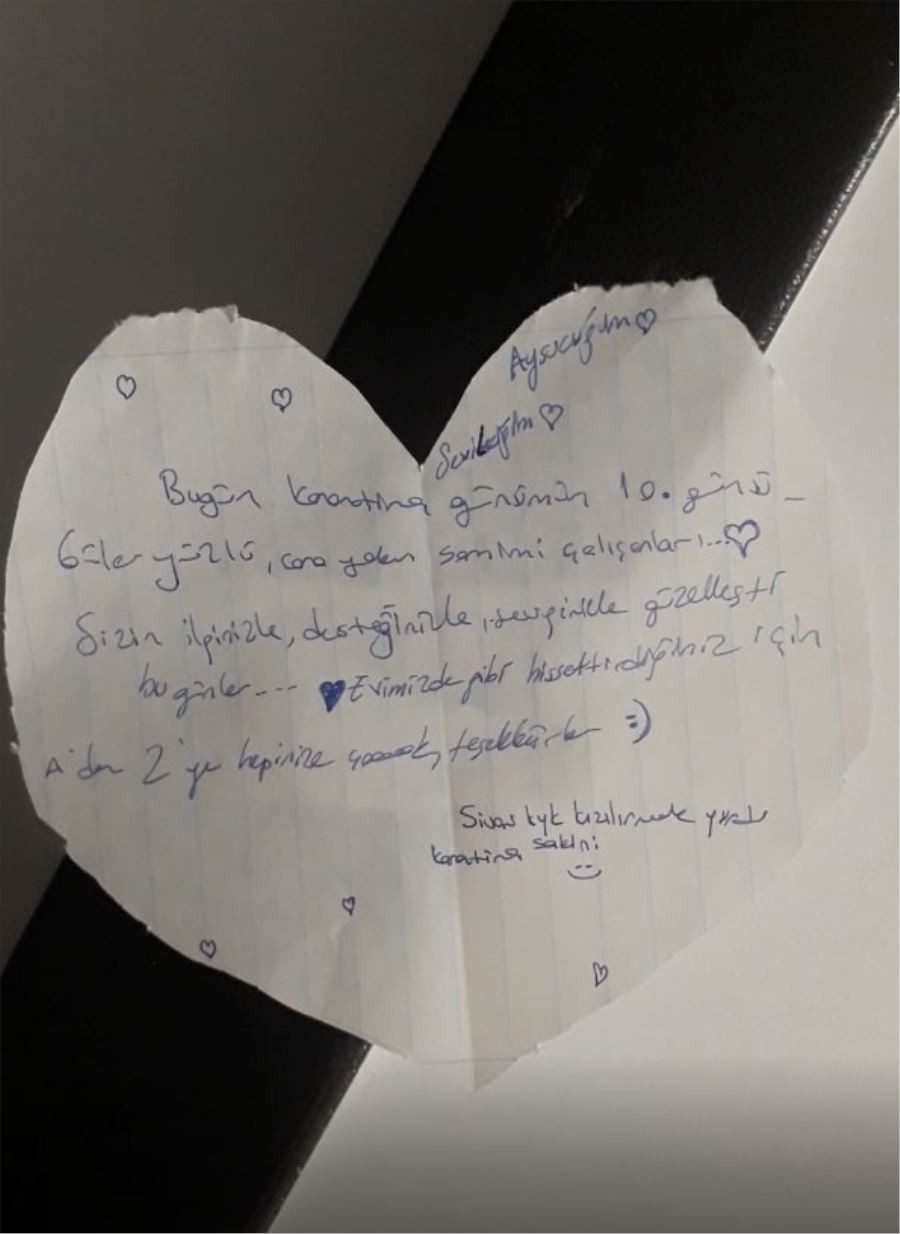 Aysucuğum ♡
Sevilciğim ♡
Bugün karantina günümün 10. günü
Güler yüzlü, cana yakın samimi çalışanları...♡
Sizin ilginizle, desteğinizle, sevginizle güzelleşti
bu günler--- ♥ Evimizde gibi hissettirdiğiniz için
A'dan Z'ye hepinize çoook teşekkürler :)
Sivas kyk kızılırmak yurdu
karantina sakini